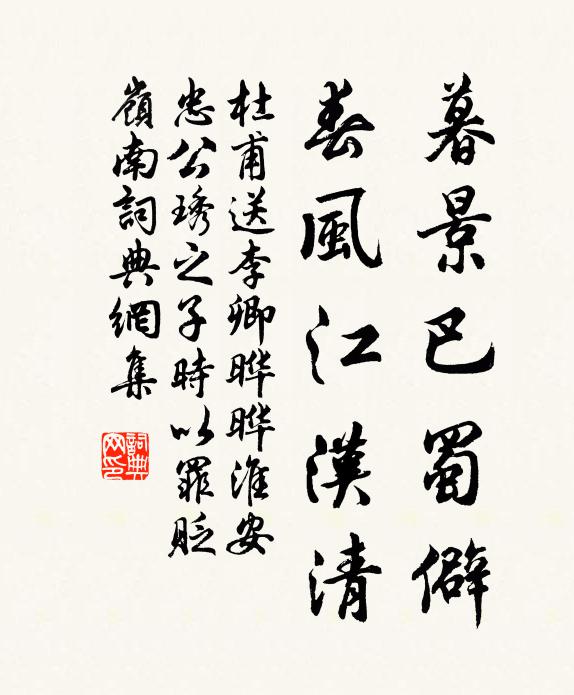 暮景巴蜀僻
春風江漢清
杜甫送李卿曄曄淮安
忠公琇之子時以罪貶
嶺南詞典網集
詞典
网印